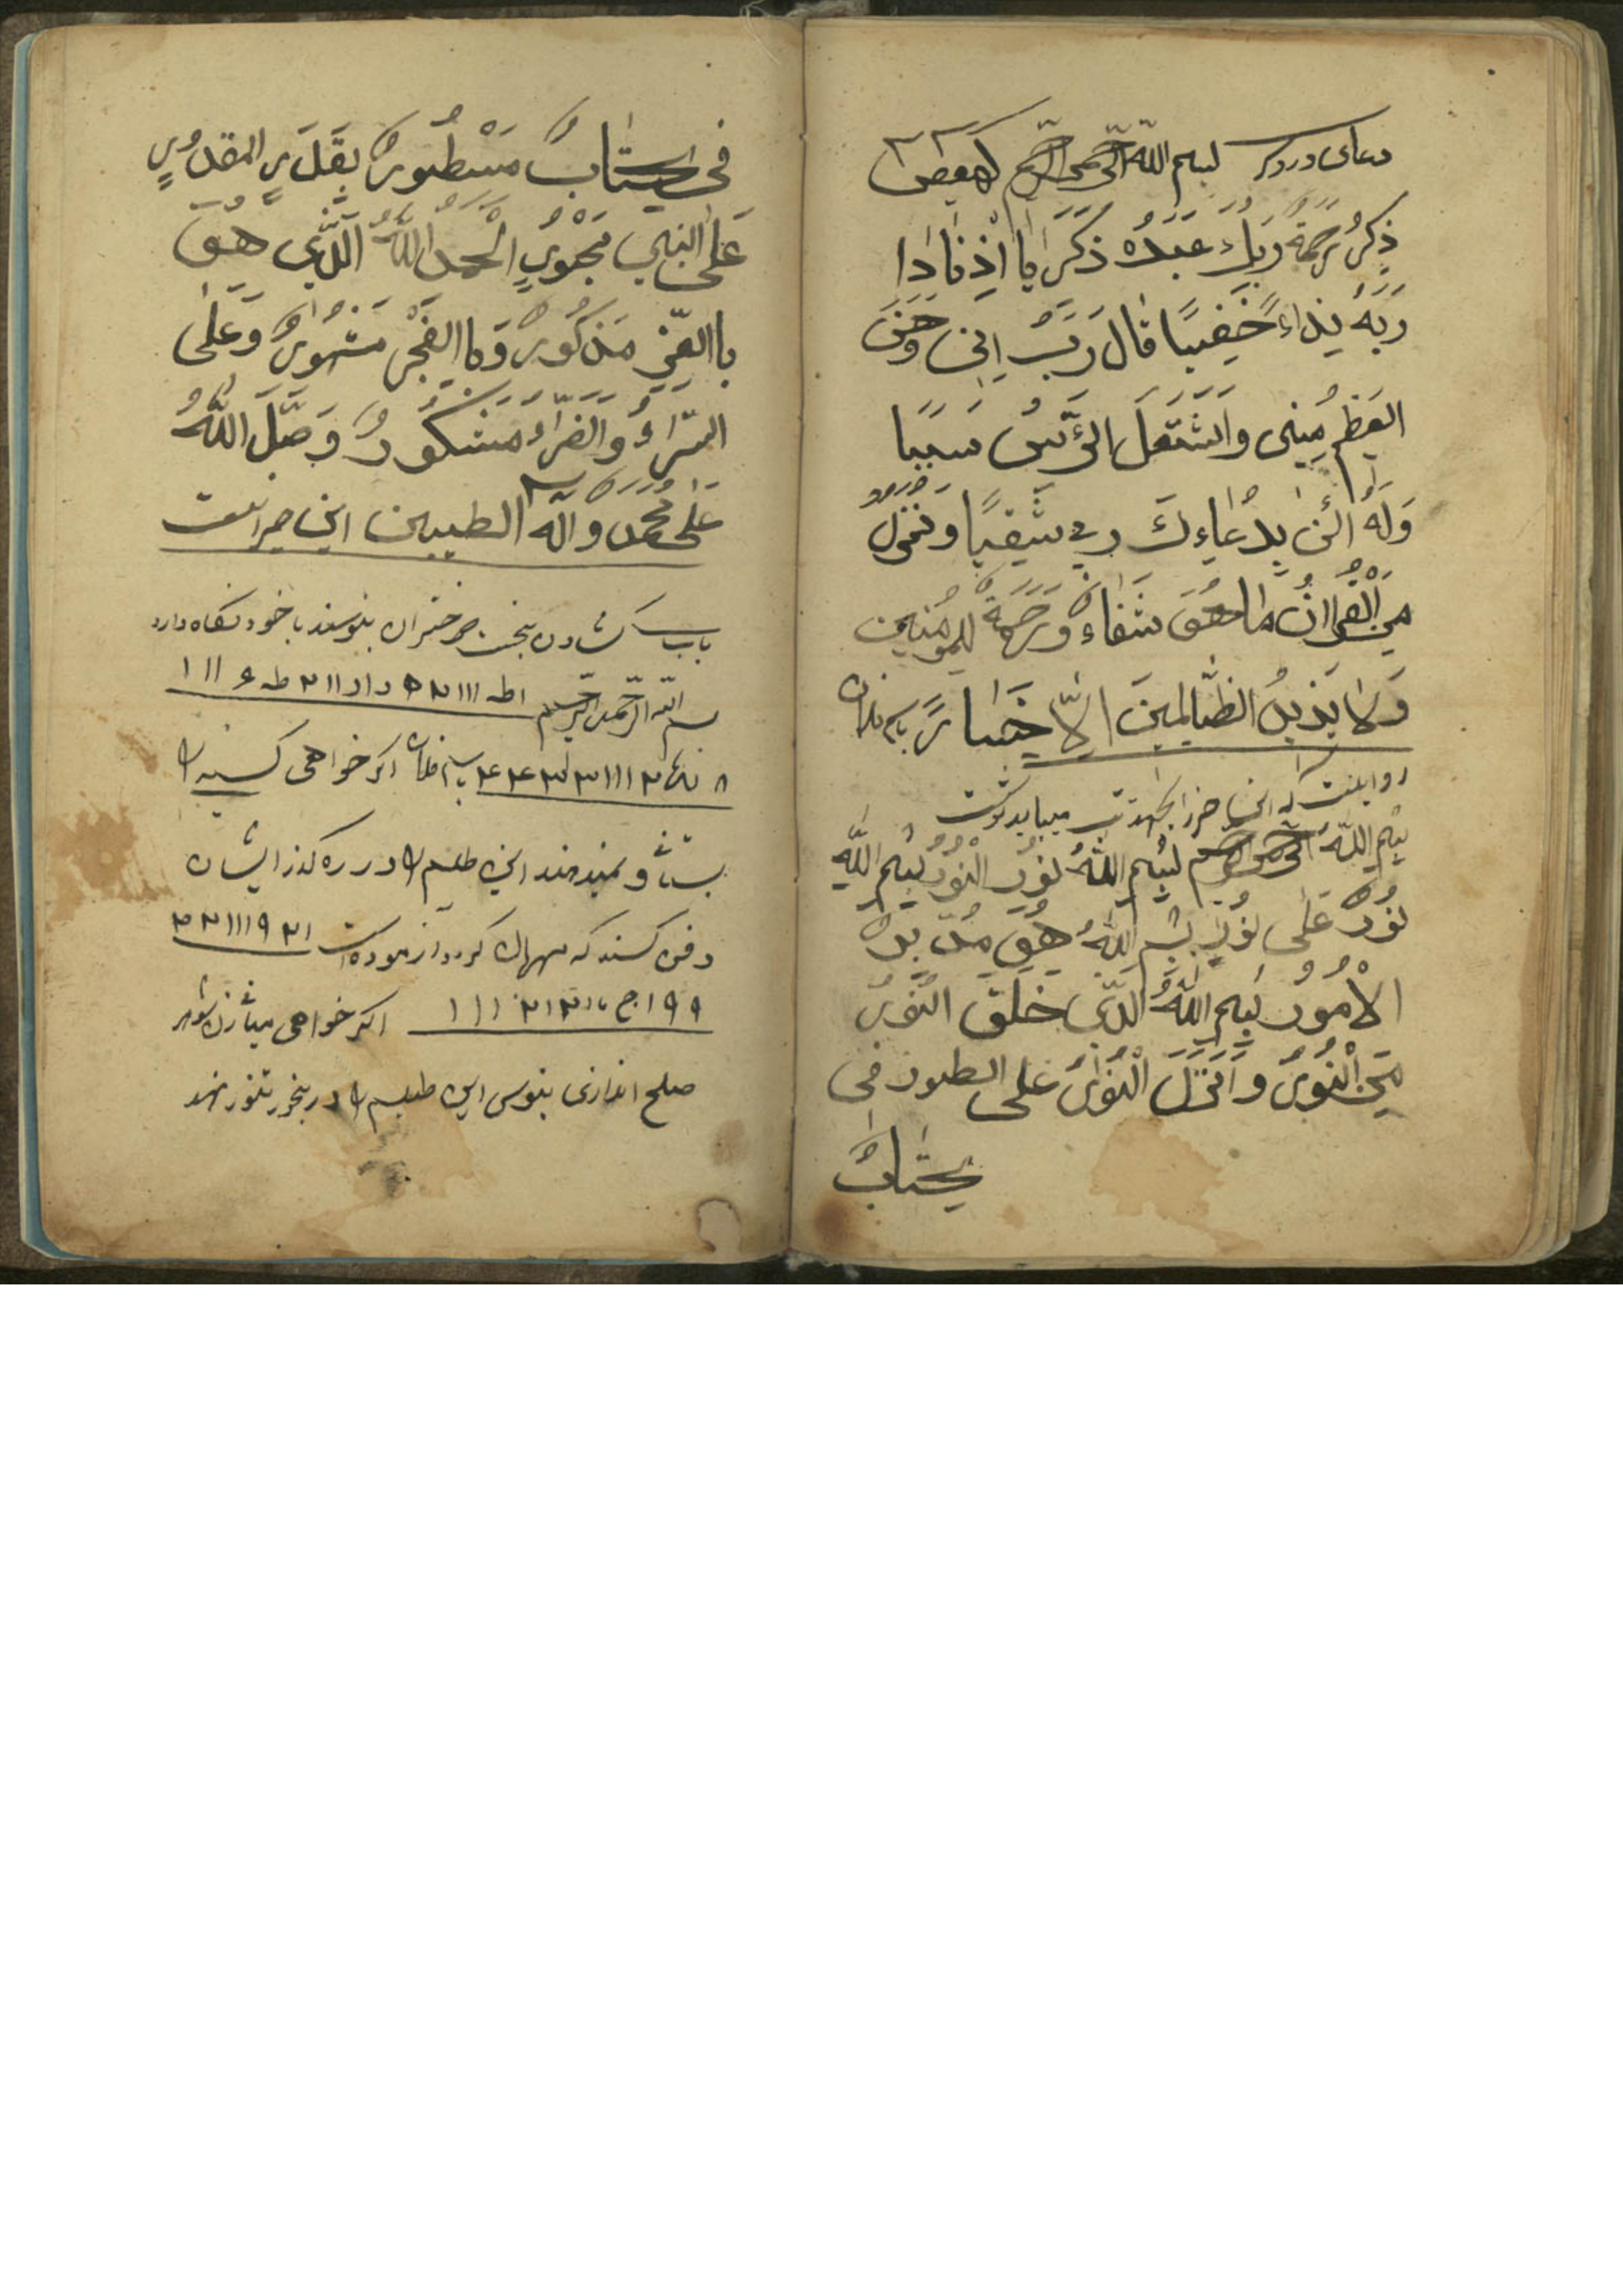 دعای درد سر بسم الله الرحمن الرحیم کهیعص
ذِکرُ رَحمَةُ رَبِكَ عَبَدُه ذَکَرَایا اِذ نادا
رَبَهُ نِداءً خَفِیًا قالَ رَبِ اِنی وَهَنَ
العَظمُ مِنِی وَاشتَعَلَ الرَّئسُ سَبَبا
وَلَم اکُن بِدُعاءِكَ رب شَقِیًا و نُنَزِلُ
مِنَ القُراانُ ما هُوَ شَفاءٌ وَرَحمَةٌ للمومنین
وَلا یَزیدُ الظالِمینَ اِلّا خَسارً باسم فلان
روایست که این حرز بجهت تب میباید نوشت
بِسم اللهُ الرحمن الرحیم بِسم اللهُ نُورُ النُورُ بِسم اللهِ
نُورٌ عَلی نُورٍ بِسم اللهُ هُوَ مُدَبِرٌ
الامُورُ بِسم اللهُ الَذی خَلَقَ النُورُ
مِنَ النُورُ وَ اَنزَلَ النُورُ عَلی الطور فی
کِتابٌ
فی الکِتابٌ مَسطُورٌ بِقَدَرٍ المقدُورٍ
عَلی النَبی مَحبُورٍ الحمدُ اللهُ الَّذی هُوَ
باالعِزِ مَذکُورٌ وَباالفَخرِ مَشهُورٌ وَعَلَی
السَراءُ وَالضَراء مَشکُورٌ وَ صَلَ اللهُ
عَلی مُحَمَد وَ آلَه الطیبین این حرز است
باب کشادن بخت دختران بنویسند با خود نگاه دارد
بسم الله الرحمن الرحیم اطه ۱۱۱ ۲
باسم فلان اگر خواهی کسی را
این طلسم را در ره گذر ایشان
دفن کنند که مهربان گردد آزموده است ۲۱ ۹ ۱۱۱ ۲۲
۱۹۹ ج اگر خواهی میان زن شوهر
صلح اندازی بنویس این طلسم را در تنور نهد